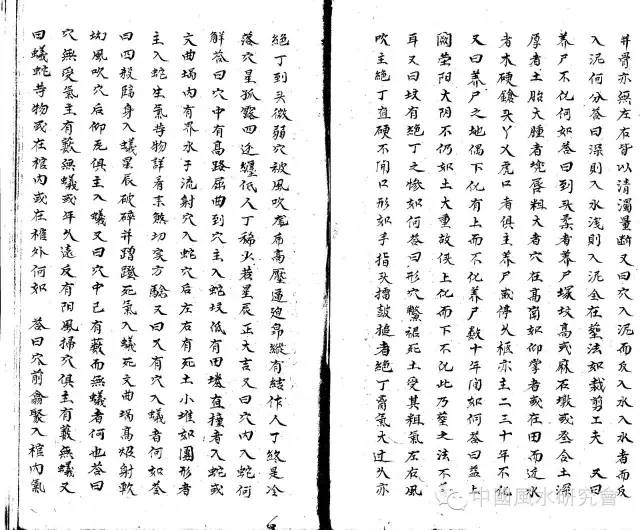 并骨亦無左右皆以清濁量断 又曰穴入泥而反入水者而反
入泥何分荅曰深則入水浅則入泥全在葬法如裁剪工夫 又曰
养尸不化何如荅曰到头柔者养尸塚坟高或麻石墩或叁合土深
厚者土胎大腫者兜唇粗大者穴在高崗如仰掌者或在田而近水
者木硬鎗头丫乂虎口者俱主养尸或停久柩亦主二三十年不化
又曰养尸之地偶下化有上而不化养尸数十年间如何荅曰盖上
阔莹阳大阴不仍如土大重故供上化而下不化此乃葬之法不
耳又曰坟有絶丁之惨如何荅曰形穴鱉裙死土受其粗氣左右風
吹主絶丁直硬不開口形如手指头擂鼓搥者絶丁霸氣大过久亦
絶丁到头微弱穴被風吹尾布高壓逼迫帛縱有結作人丁終是冷
落穴星孤露四边缠低人丁稀少若星辰正大言又曰穴内入蛇何
觧荅曰穴中有高路屈曲到穴主入蛇坟低有田塍直撞者入蛇或
文曲堝内有界水于流射穴入蛇穴后左右有死土小堆如團形者
主入蛇生氣等物詳看末煞切定方驗又曰又有穴入蟻者何如荅
曰四殺臨身入蟻星辰破碎并蹭蹬死氣入蟻死文曲堝高壓射軟
坳風吹穴后仰死俱主入蟻又曰穴中已有藪而無蟻者何也荅曰
穴無受氣主有藪無蟻或年久遠反有阳風掃穴俱主有藪無蟻又
曰蟻蛇等物或在棺内或在椎外何如 荅曰穴前翕聚入棺内氣
中國風水研究會